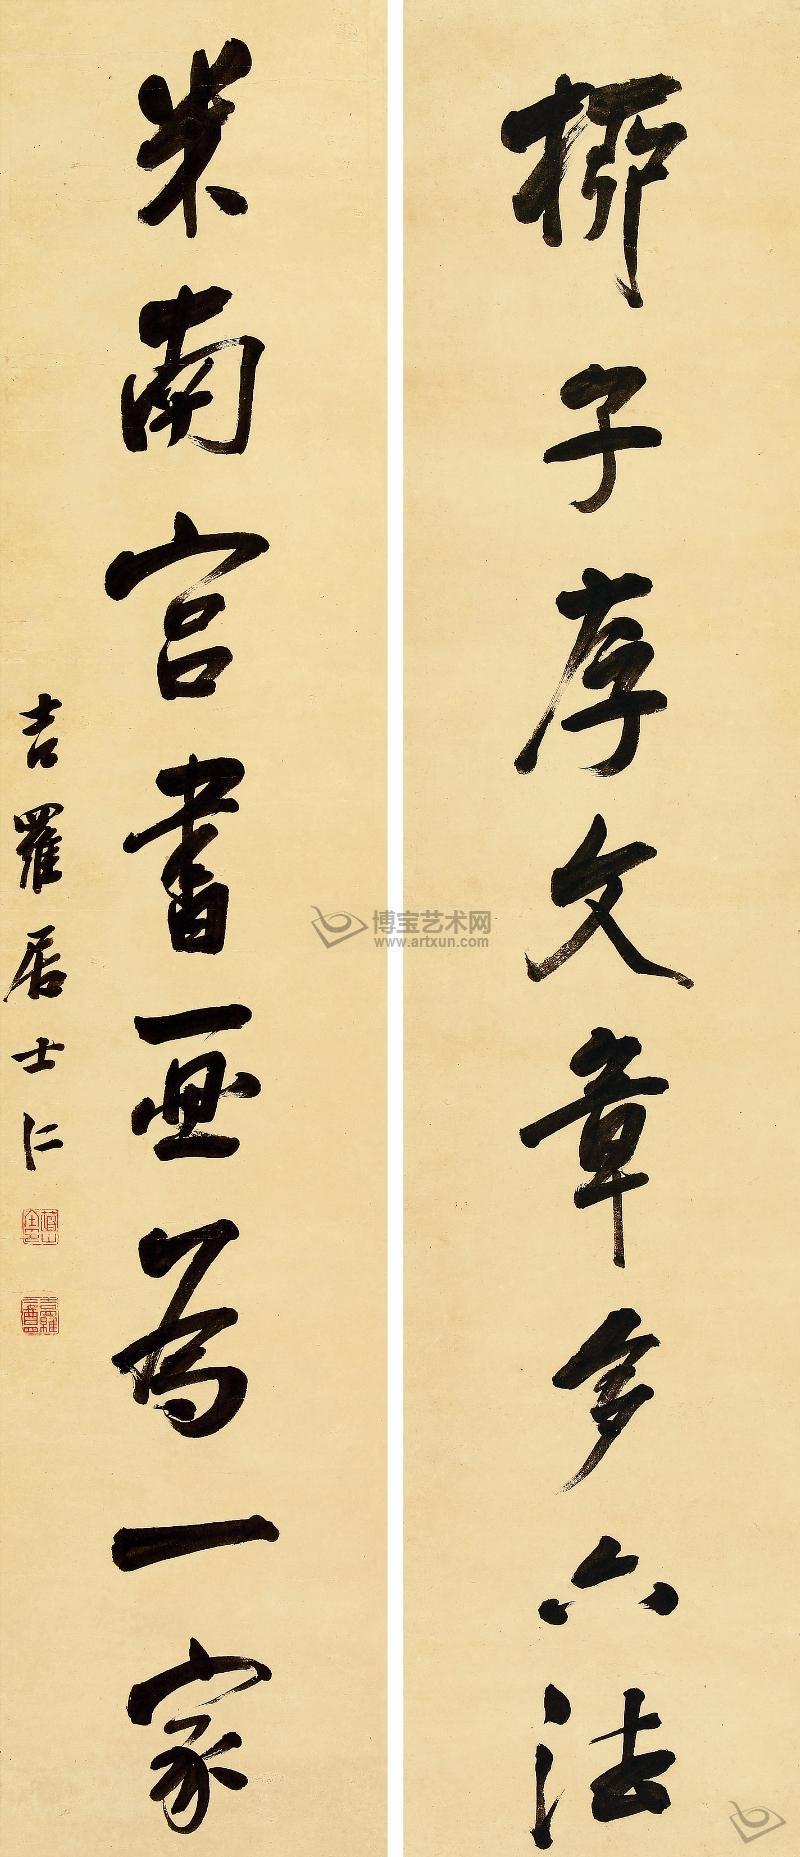 柳子存文章多六法
米南宫書画為一家
吉羅居士仁
博宝艺术网
www.artxun.com